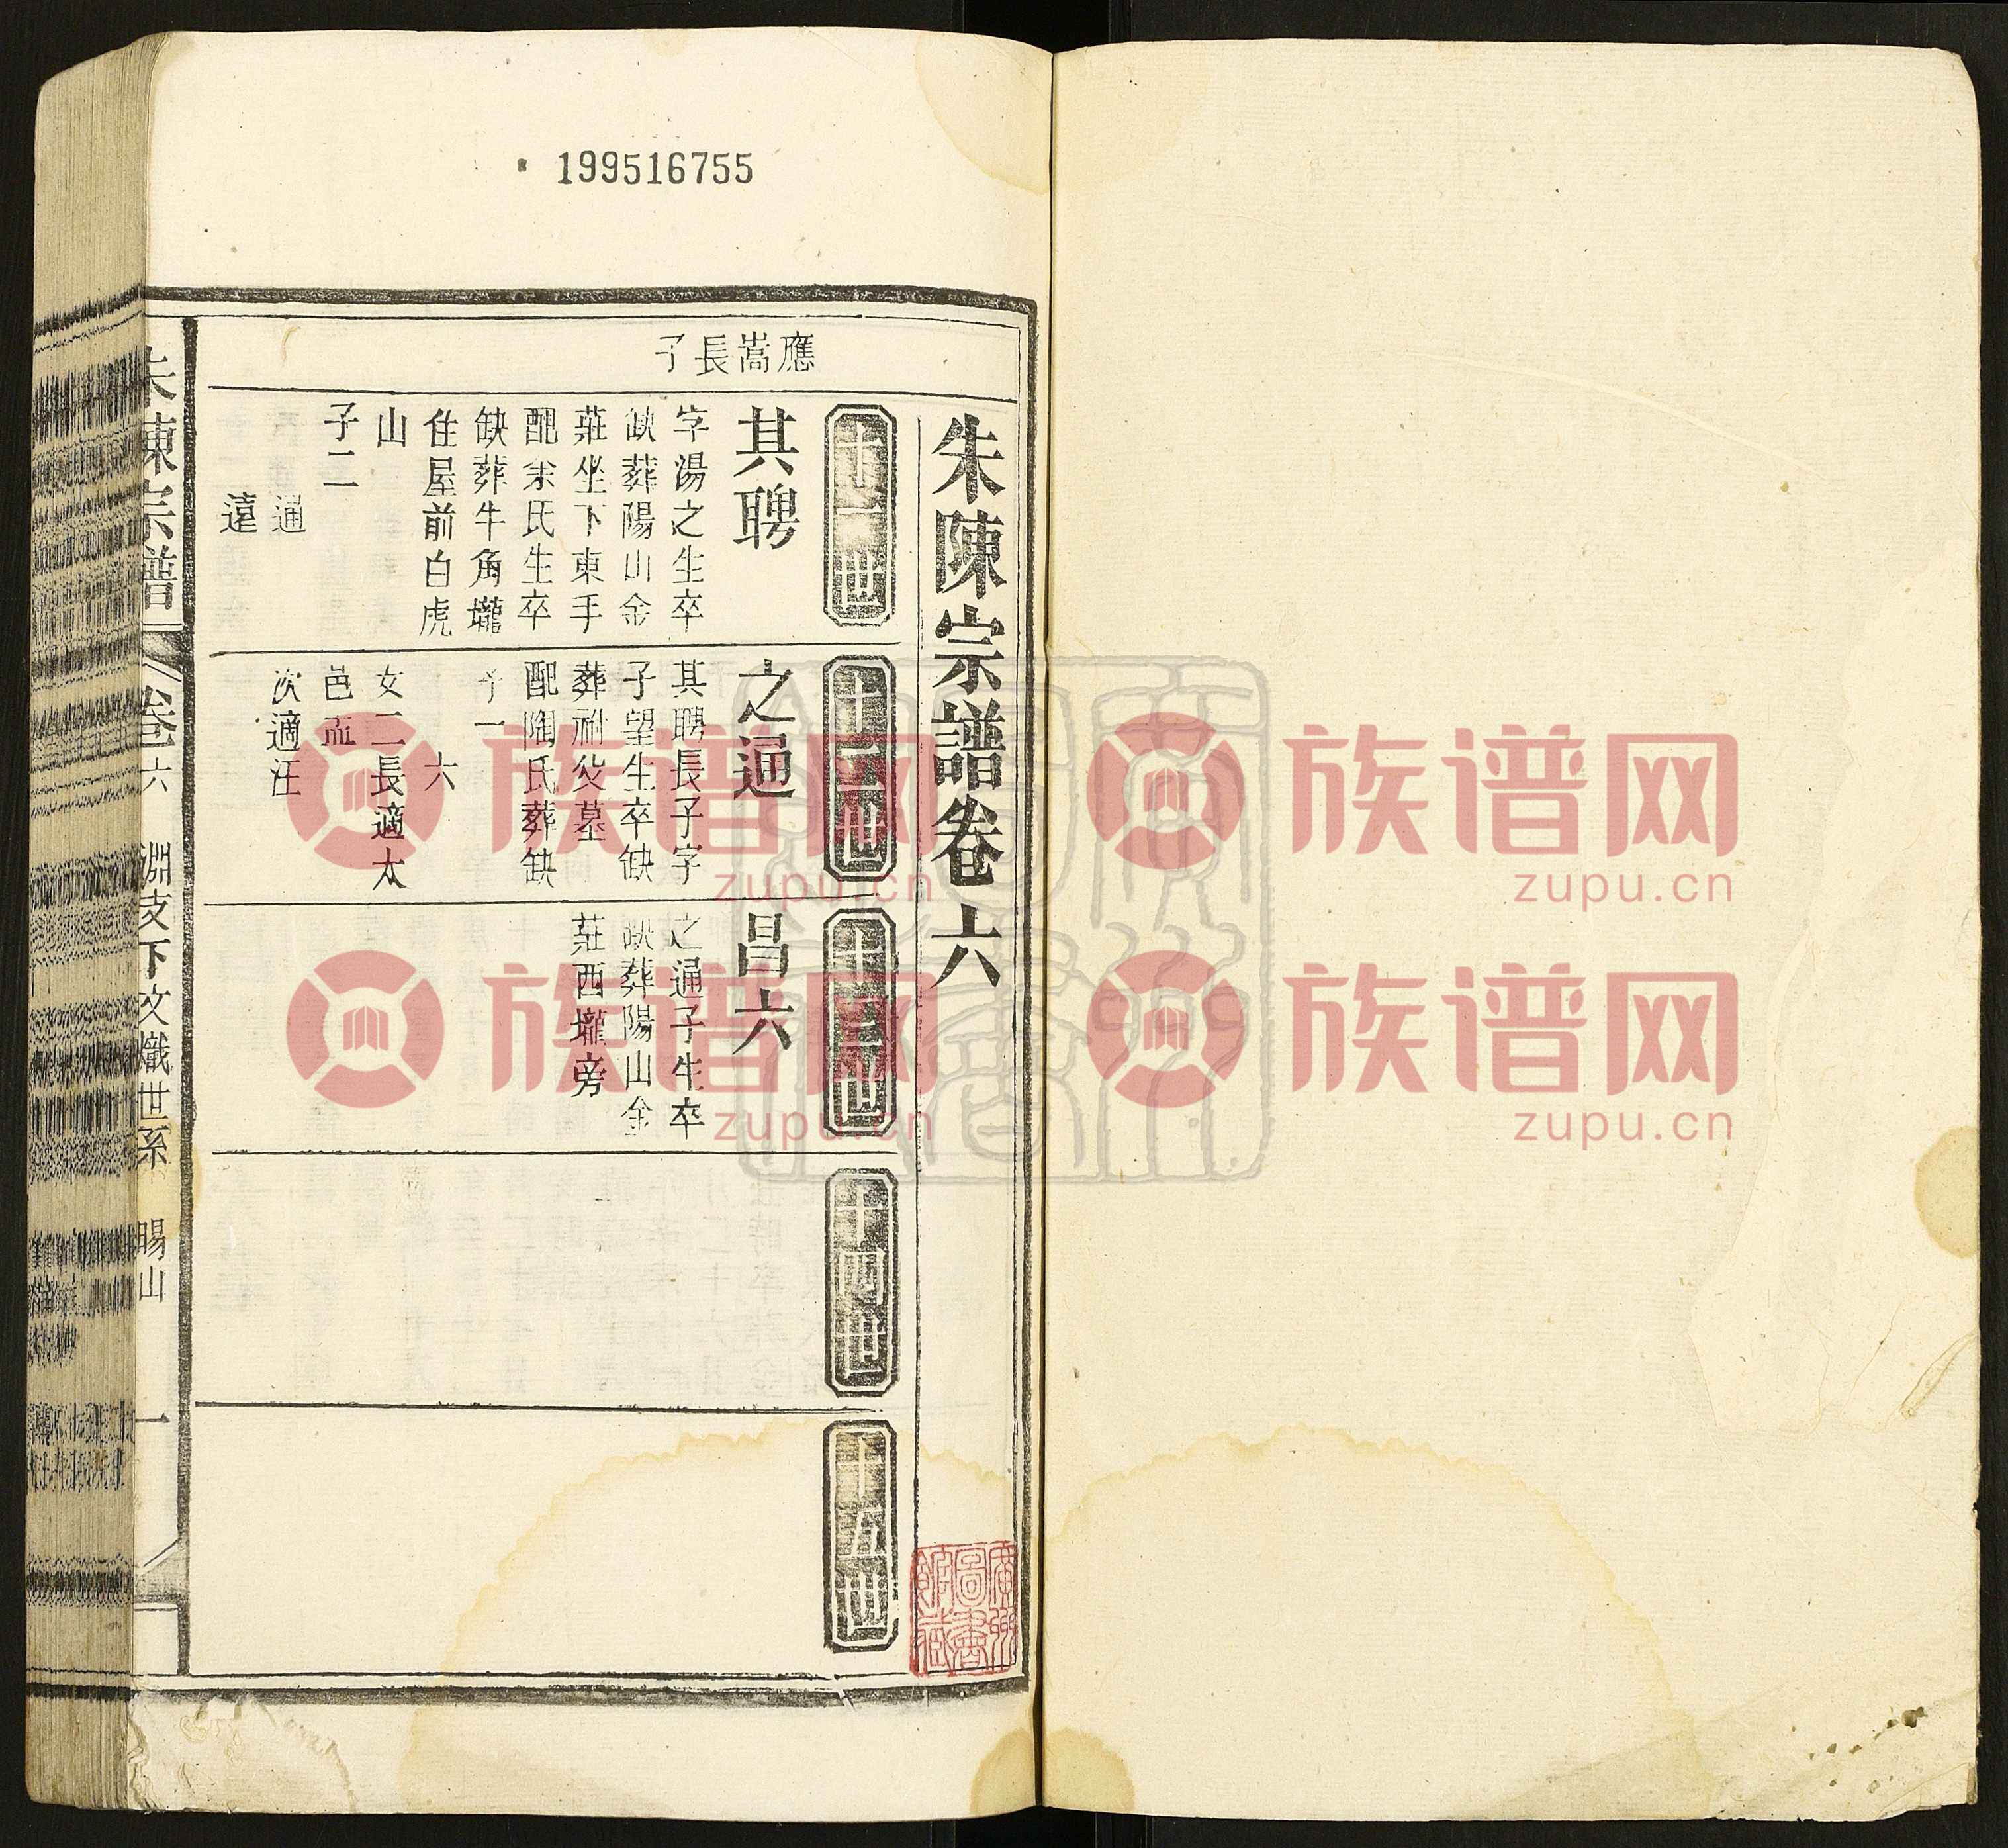 199516755
朱陳宗譜卷六
應嵩長子
十一世
其聘
字湯之生卒
缺葬陽山金
莊坐下東手
配余氏生卒
缺葬牛角壠
住屋前白虎
山
子二
通
遠
十二世
之通
其聘長子字
子望生卒缺
葬祔父墓
配陶氏葬缺
子一
六
女二長適太
邑
次適汪
十三世
昌六
之通子生卒
缺葬陽山金
莊西壠旁
十四世
十五世
朱陳宗譜
卷六
淵支下文熾世系
暘山
一
廣州
圖書
館藏
族谱网
zupu.cn
族谱网
zupu.cn
族谱网
zupu.cn
族谱网
zupu.cn